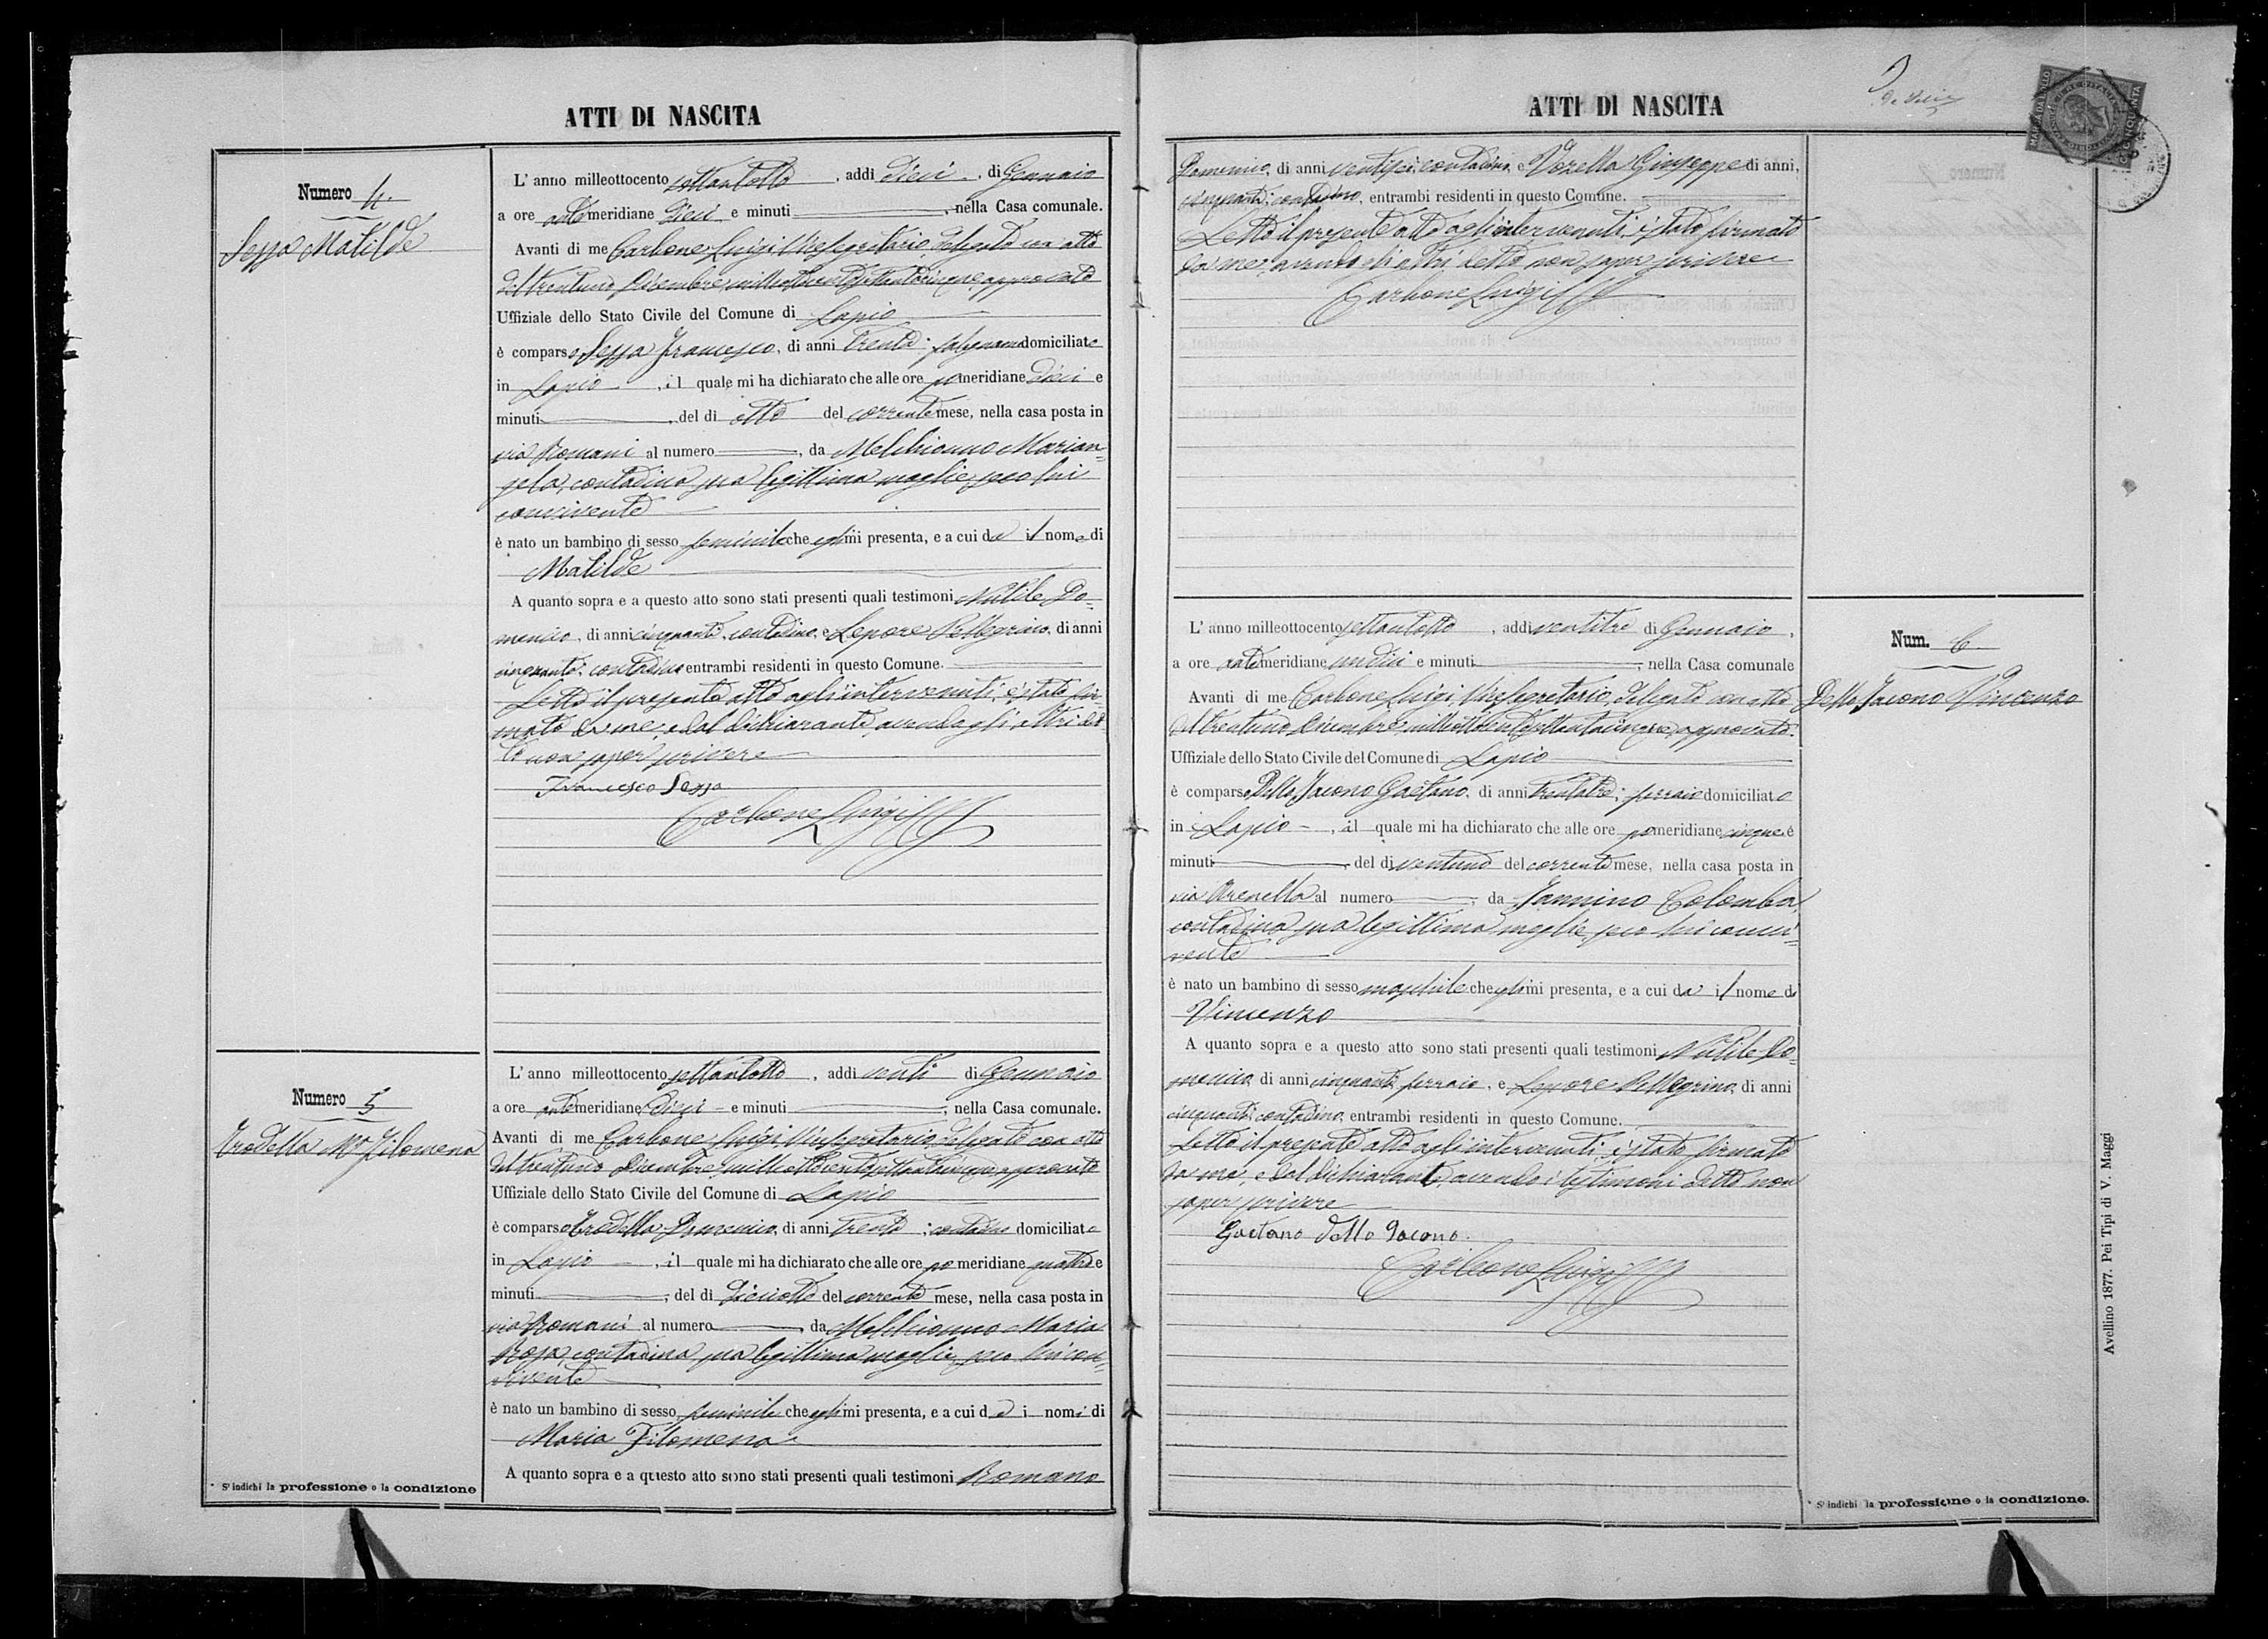 ATTI DI NASCITA
Numero 4.
Sessa Matilde
L' anno milleottocento settantotto, addì dieci, di Gennaio
a ore antimeridiane dieci e minuti, nella Casa comunale.
Avanti di me Carbone Luigi Vice Segretario, delegato con atto
del trentuno Dicembre milleottocentosettantacinque, approvato
Uffiziale dello Stato Civile del Comune di Lapio
è comparso Sessa Francesco, di anni trenta; falegname domiciliato
in Lapio, il quale mi ha dichiarato che alle ore pomeridiane dieci e
minuti, del dì otto del corrente mese, nella casa posta in
via Romani al numero, da Melchionno Marian=
gela, contadina sua legittima moglie, seco lui
convivente
è nato un bambino di sesso feminile che egli mi presenta, e a cui dà il nome di
Matilde
A quanto sopra e a questo atto sono stati presenti quali testimoni Nutile Do=
menico, di anni cinquanta, contadino, e Lepore Pellegrino, di anni
cinquanta; contadino entrambi residenti in questo Comune.
Letto il presente atto agli intervenuti, è stato fir=
mato da me, e dal dichiarante, avendo gli altri det=
to non saper scrivere
Francesco Sessa
Carbone Luigi
Numero 5
Trodella Ma Filomena
L' anno milleottocento settantotto, addì venti di Gennaio
a ore antimeridiane dieci e minuti, nella Casa comunale.
Avanti di me Carbone Luigi Vice Segretario, delegato con atto
del trentuno Dicembre milleottocentosettantacinque approvato
Uffiziale dello Stato Civile del Comune di Lapio
è comparso Trodella Domenico, di anni trenta; contadino domiciliato
in Lapio, il quale mi ha dichiarato che alle ore pomeridiane quattro e
minuti, del dì dieciotto del corrente mese, nella casa posta in
via Romani al numero, da Melchionno Maria
Rosa, contadina, sua legittima moglie, seco lui con=
vivente
è nato un bambino di sesso feminile che egli mi presenta, e a cui dà i nomi di
Maria Filomena
A quanto sopra e a questo atto sono stati presenti quali testimoni Romano
* S' indichi la professione o la condizione
ATTI DI NASCITA
Domenico, di anni contadino, e Vozella Giuseppe di anni,
cinquanta; contadino, entrambi residenti in questo Comune.
Letto il presente atto agli intervenuti, è stato firmato
da me, avendo gli altri detto non saper scrivere
Carbone Luigi
L' anno milleottocento settantotto, addì ventitre di Gennaio,
a ore antimeridiane undici e minuti, nella Casa comunale
Avanti di me Carbone Luigi, Vice Segretario, delegato con atto
del trentuno Dicembre milleottocentosettantacinque, approvato.
Uffiziale dello Stato Civile del Comune di Lapio
è comparso Dello Jacono Gaetano, di anni trentatre; ferraio domiciliato
in Lapio, il quale mi ha dichiarato che alle ore pomeridiane cinque e
minuti, del dì ventuno del corrente mese, nella casa posta in
via Arenella al numero, da Jannino Colomba,
contadina sua legittima moglie, seco lui convi=
vente
è nato un bambino di sesso maschile che egli mi presenta, e a cui dà il nome di
Vincenzo
A quanto sopra e a questo atto sono stati presenti quali testimoni Nutile Do=
menico, di anni cinquanta, ferraio, e Lepore Pellegrino, di anni
cinquanta; contadino, entrambi residenti in questo Comune.
Letto il presente atto agli intervenuti, è stato firmato
da me, e dal dichiarante, avendo i testimoni detto non
saper scrivere
Gaetano dello Jacono.
Carbone Luigi
Num. 6.
Dello Jacono Vincenzo
* S' indichi la professione o la condizione.
Avellino 1877. Pei Tipi di V. Maggi